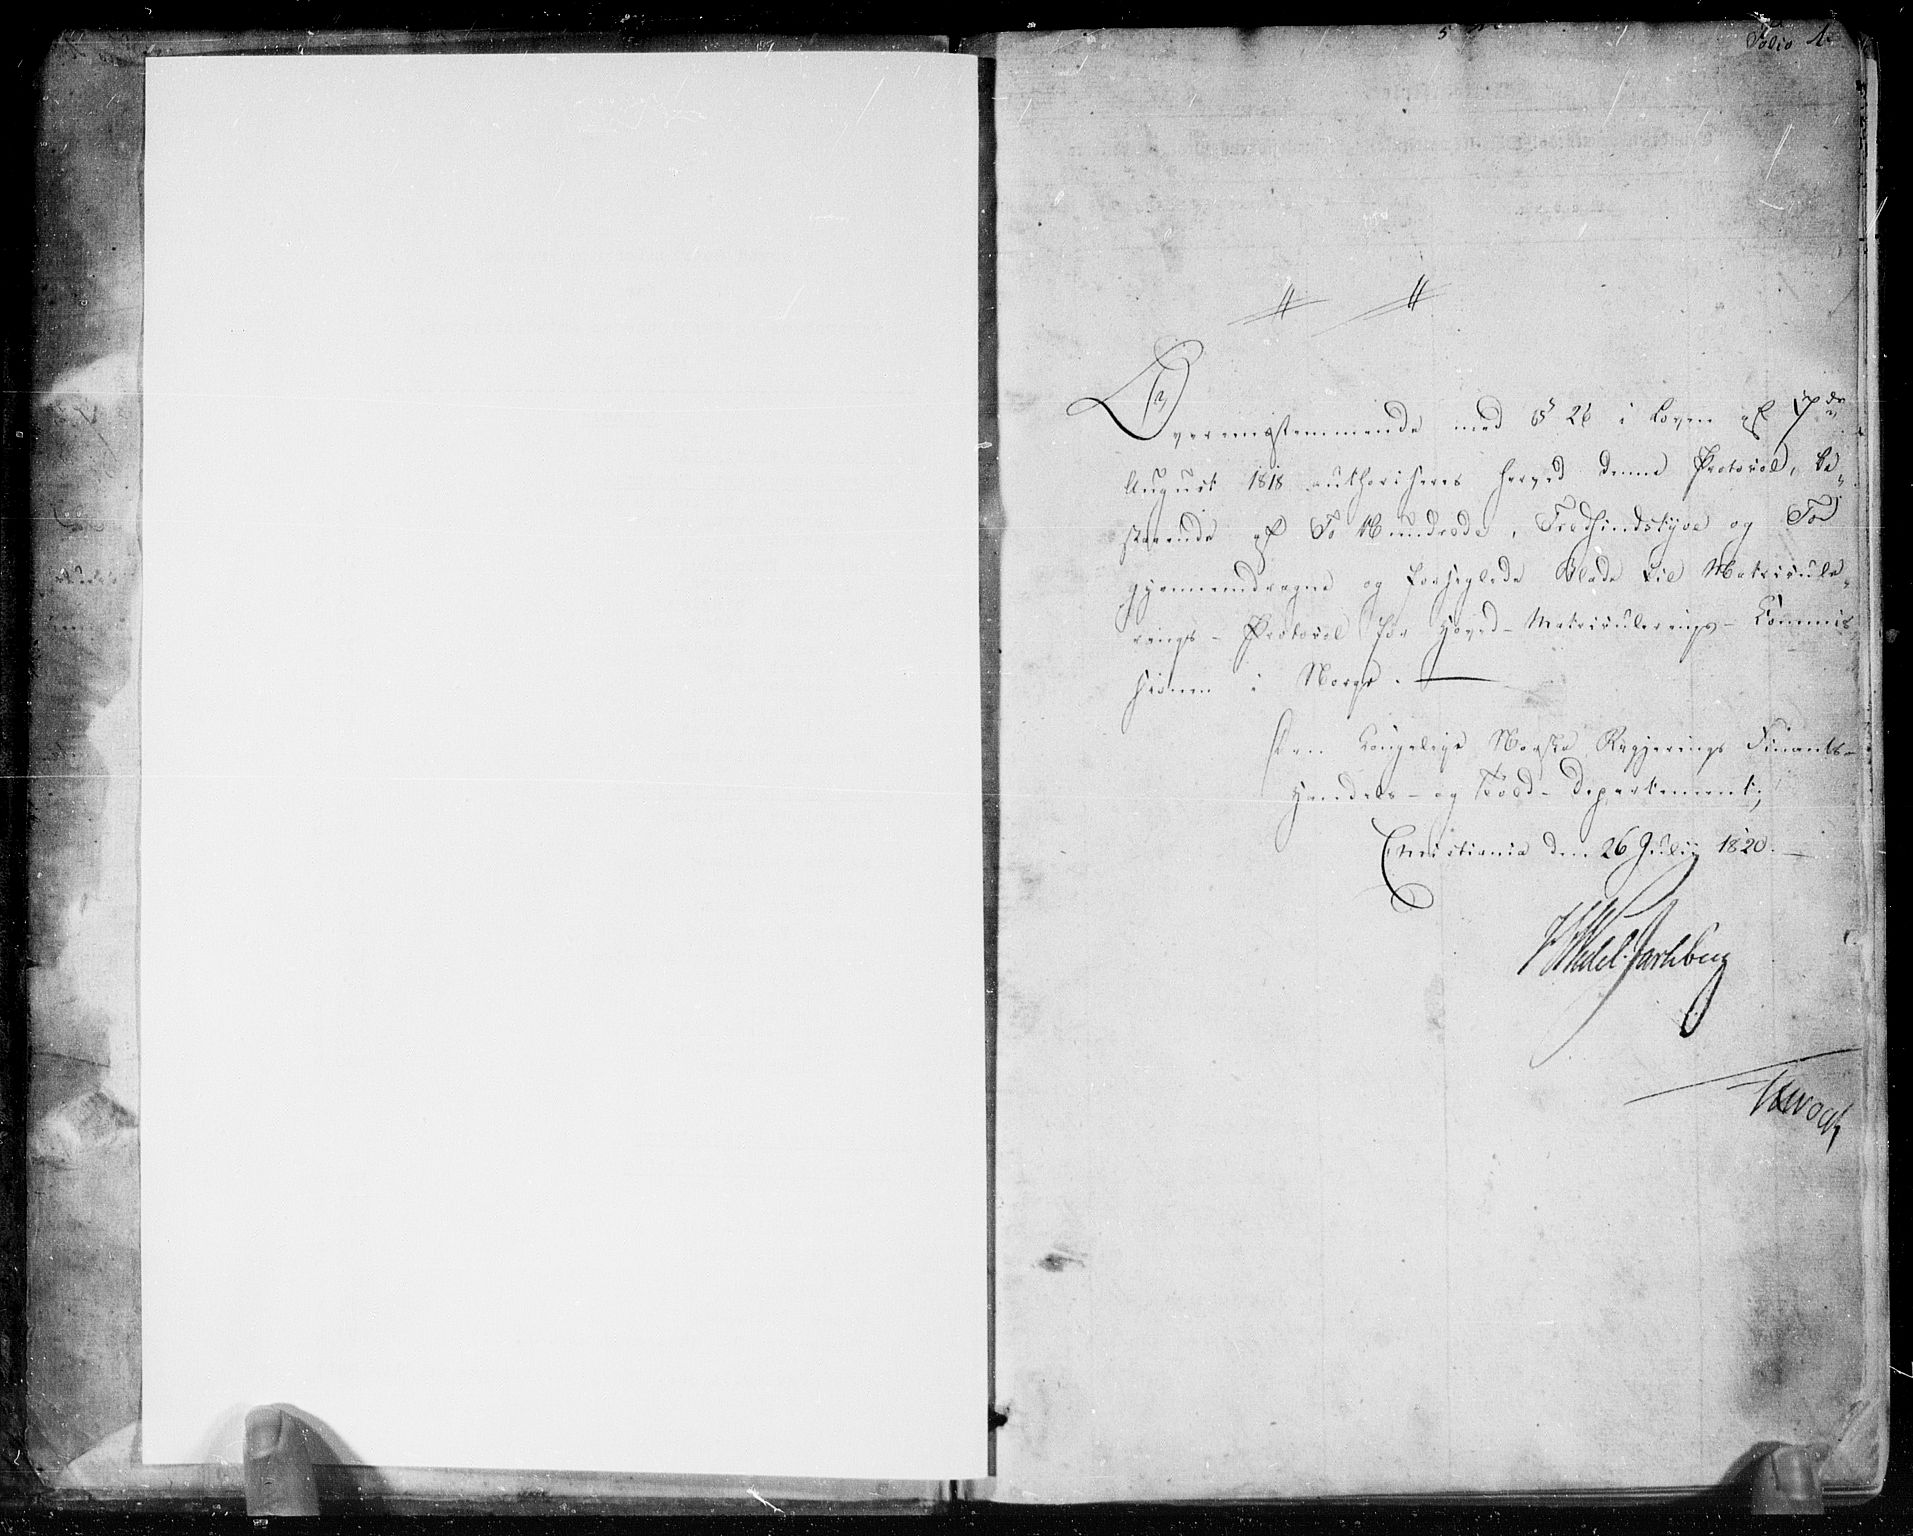 Folio 1.
Overeensstemmende med § 26 i Loven af 17de
August 1818 authoriseres herved denne Protocol, be-
staaende af To Hundrede, Tredsindstyve og To
gjennemdragne og forseglede Blade til Matricule-
rings-Protocol for Hoved-Matriculerings-Commis-
sionen i Norge.
Den Kongelige Norske Regjerings Finants-
Handels- og Told-Departement,
Christiania den 26 Julii 1820.
Wedel Jarlsberg